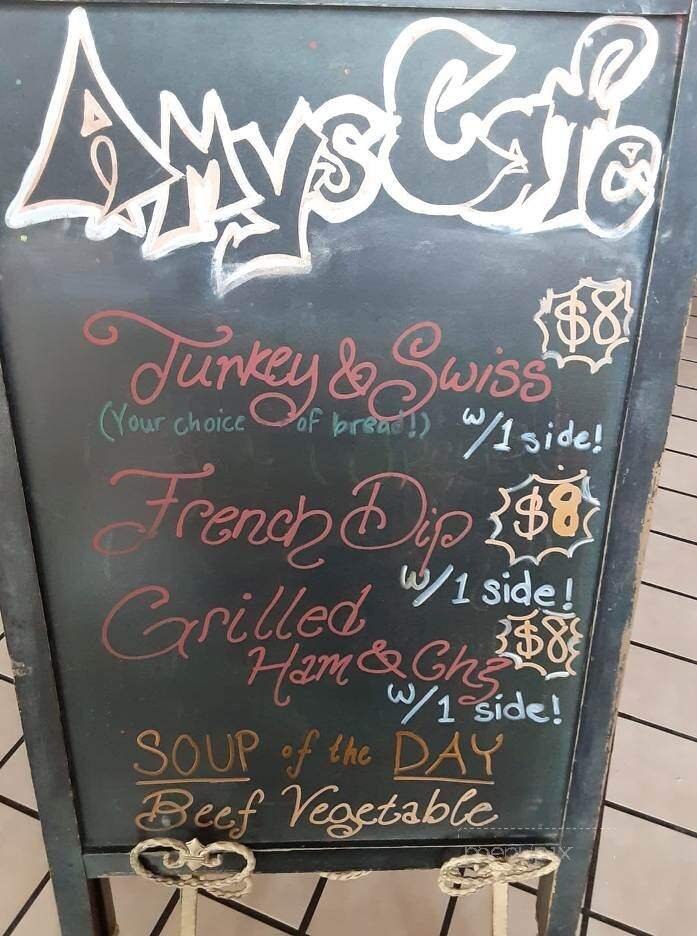 Amys Cafe
$8
Turkey & Swiss
(Your choice of bread!) w/1 side!
French Dip $8
w/1 side!
Grilled
Ham & Chz $8
w/1 side!
SOUP of the DAY
Beef Vegetable